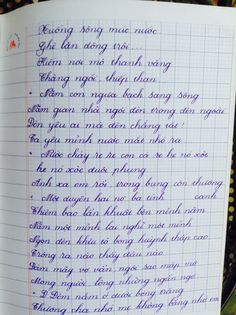 Xuống sông múc nước
Ghé lần dòng trôi...
Kiếm nơi mô thanh vắng
Thăng ngôi, thiếp than
• Năm con ngựa bạch sang sông
Năm gian nhà ngói đèn trong đèn ngoài
Đèn yêu ai mà đèn chẳng tắt!
Ta yêu mình nước mắt nhỏ ra
• Nước chảy re re con cá he nó xòe
he nó xòe đuôi phụng
Anh xa em rồi trong bụng còn thương
• Một duyên hai nợ ba tình
canh
Chiêm bao lẩn khuất bên mình năm
Nằm một mình lại nghĩ một mình
Ngọn đèn khêu tỏ bóng huỳnh thấp cao
Trông ra nào thấy đâu nào
Đám mây vơ vẩn, ngôi sao mập mờ
Mong người lòng những ngẩn ngơ
• Đêm nằm ở dưới bóng trăng
Thương cha nhớ mẹ không bằng nhớ em